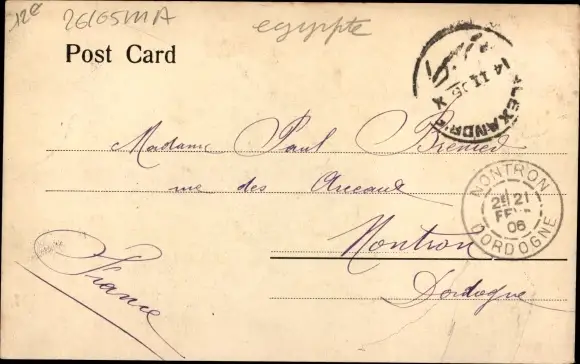 12e
egypte
Post Card
ALEXANDRIE
14 II 06
X
Madame Paul
rue des Arceaux
Nontron
Dordogne
France
NONTRON
2E 21
FEVR
06
DORDOGNE